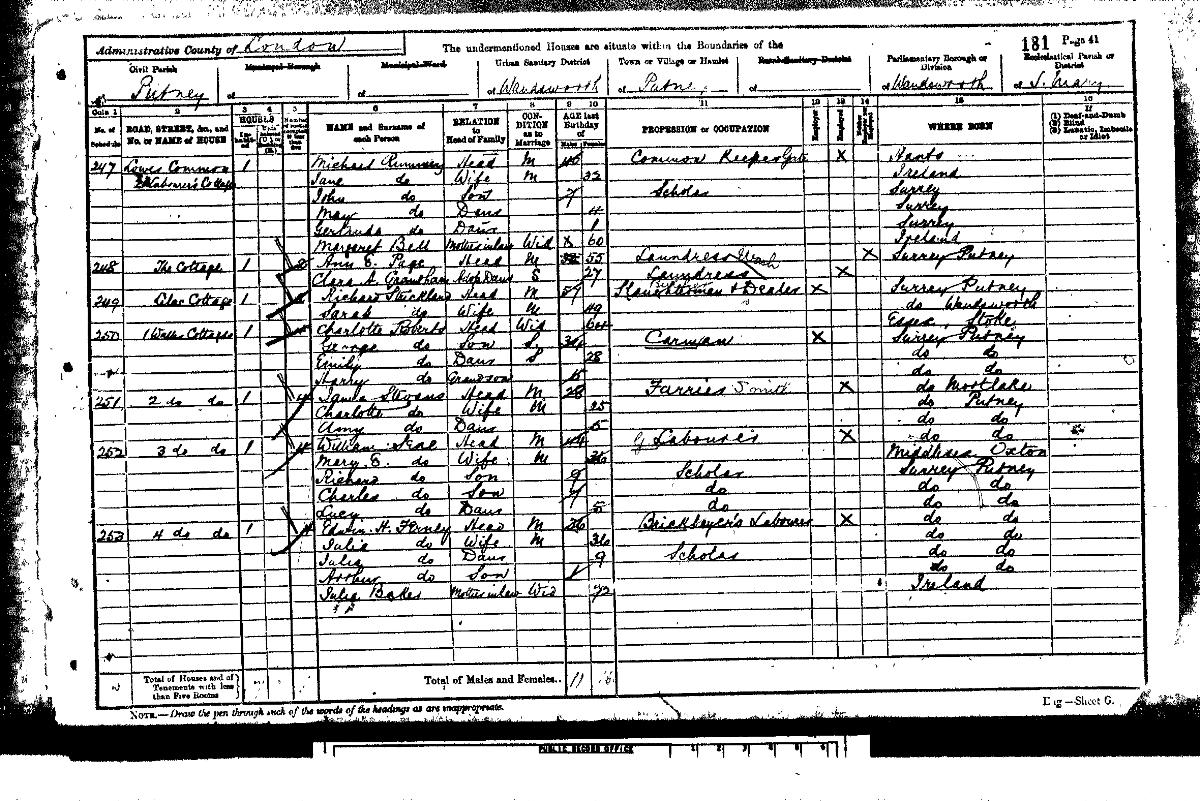 Administrative County of London
The undermentioned Houses are situate within the Boundaries of the
181 Page 41
Civil Parish Municipal Borough Municipal Ward Urban Sanitary District Town or Village or Hamlet Rural Sanitary District Parliamentary Borough or Division Ecclesiastical Parish or District
of Putney of of of Wandsworth of Putney of of Wandsworth of S. Mary
Cols 1 2 3 4 5 6 7 8 9 10 11 12 13 14 15 16
No. of Schedule ROAD, STREET, &c., and No. or NAME of HOUSE HOUSES NAME and Surname of each Person RELATION to Head of Family CONDITION as to Marriage AGE last Birthday of Males Females PROFESSION or OCCUPATION Employer Employed WHERE BORN If (1) Deaf-and-Dumb (2) Blind (3) Lunatic, Imbecile or Idiot
247 Lower Common 1 Michael Head M 45 Common Keeper X Hants
Cottage Jane do Wife M 32 Ireland
John do Son 7 Scholar Surrey
May do Daur 4 Surrey
Gertrude do Daur 1 Surrey
Margaret Bell Mother in law Wid X 60 Ireland
248 The Cottage 1 Ann E. Page Head M 55 Laundress Wash X Surrey Putney
Clara A. Grantham Step Daur S 27 Laundress X
249 Lilac Cottage 1 Richard Strickland Head M 59 Slaughterman & Dealer X Surrey Putney
Sarah do Wife M 49 do Wandsworth
250 1 Cottages 1 Charlotte Roberts Head Wid 64 Essex, Stoke
George do Son S 34 Carman X Surrey Putney
Emily do Daur S 28 do do
Harry do Grandson 5 do do
251 2 do do 1 Stevens Head M 28 Farrier Smith X do Mortlake
Charlotte do Wife M 25 do Putney
Amy do Daur 5 do do
252 3 do do 1 William Head M 44 G Labourer X do do
Mary E. do Wife M 36 Middlesex
Richard do Son 9 Scholar Surrey Putney
Charles do Son 7 do do do
Lucy do Daur 5 do do do
253 4 do do 1 Edwin H. Head M 36 Bricklayer's Labourer X do do
Julia do Wife M 36 do do
Julia do Daur 9 Scholar do do
Arthur do Son 1 do do
Julia Baker Mother in law Wid 72 Ireland
Total of Houses and of Tenements with less than Five Rooms
Total of Males and Females.. 11 16
NOTE.—Draw the pen through such of the words of the headings as are inappropriate.
Eng—Sheet G.
PUBLIC RECORD OFFICE
1 2 3 4 5 6